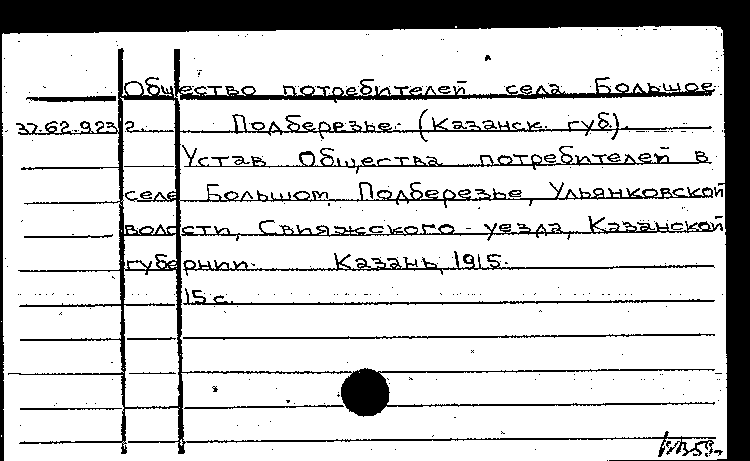 Общество потребителей села Большое
37.62.9.23 2. Подберезье. (Казанск. губ).
Устав Общества потребителей в
селе Большом Подберезье, Ульянковской
волости, Свияжского уезда, Казанской
губернии. Казань, 1915.
15 с.